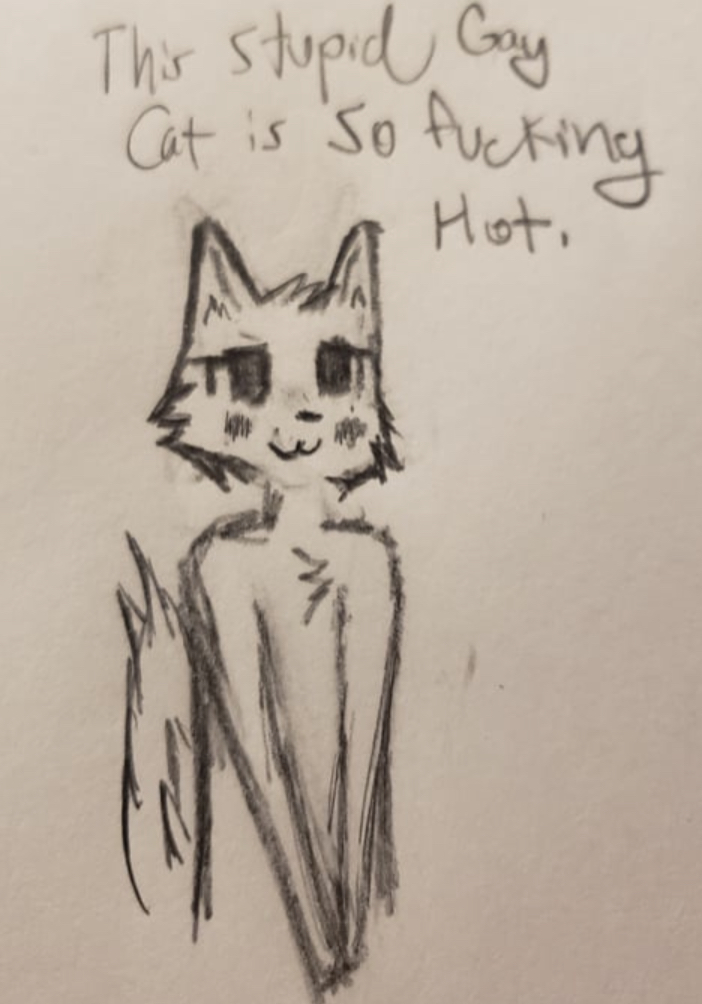 This stupid Gay
Cat is So fucking
Hot.